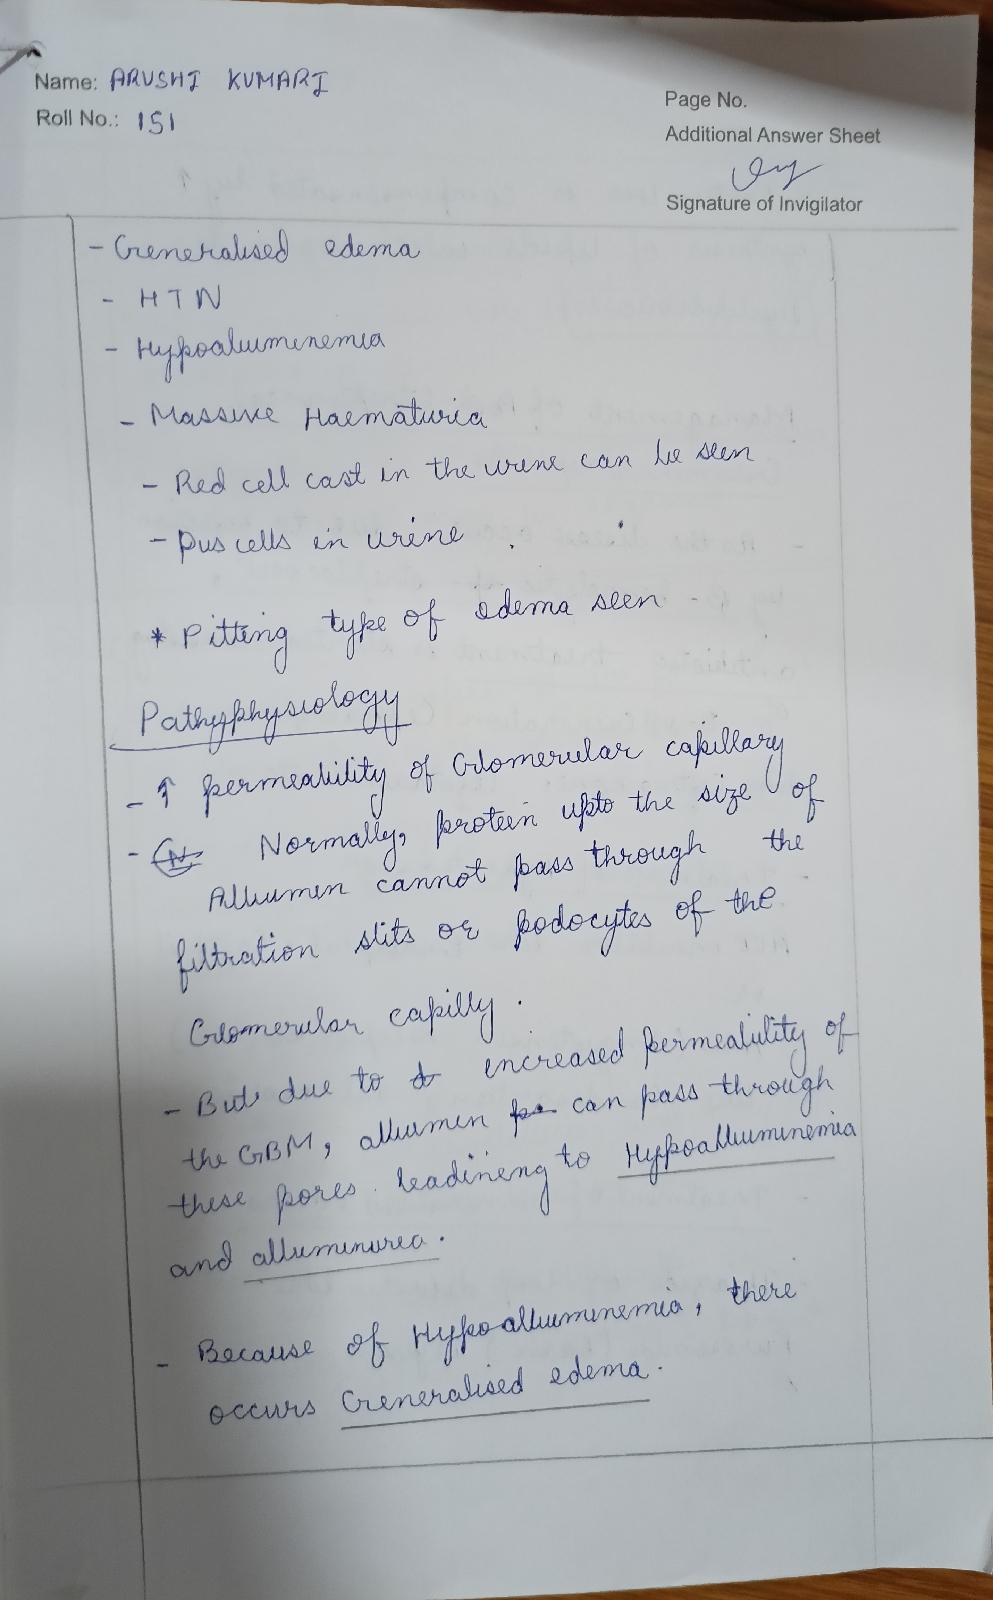 Name: ARUSHI KUMARI
Roll No.: 151
Page No.
Additional Answer Sheet
Signature of Invigilator
- Generalised edema
- HTN
- Hypoalbuminemia
- Massive Haematuria
- Red cell cast in the urine can be seen
- Pus cells in urine.
* Pitting type of edema seen
Pathyphysiology
- ↑ permeability of Glomerular capillary
- Normally, protein upto the size of
Albumen cannot pass through the
filtration slits or podocytes of the
Glomerular capilly.
- But due to increased permeability of
the GBM, albumen can pass through
these pores leadineng to Hypoalbuminemia
and albuminurea.
- Because of Hypoalbuminemia, there
occurs Generalised edema.